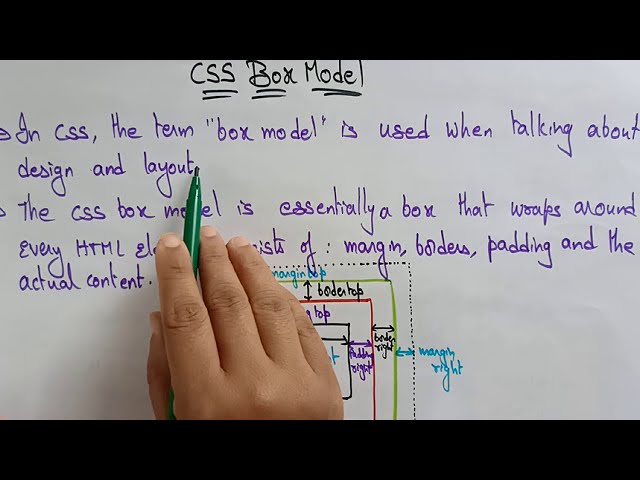 CSS Box Model
In css, the term "box model" is used when talking about
design and layout.
The css box model is essentially a box that wraps around
Every HTML of : margin, borders, padding and the
actual content.
margin top
border top
top
padding right
border right
margin right